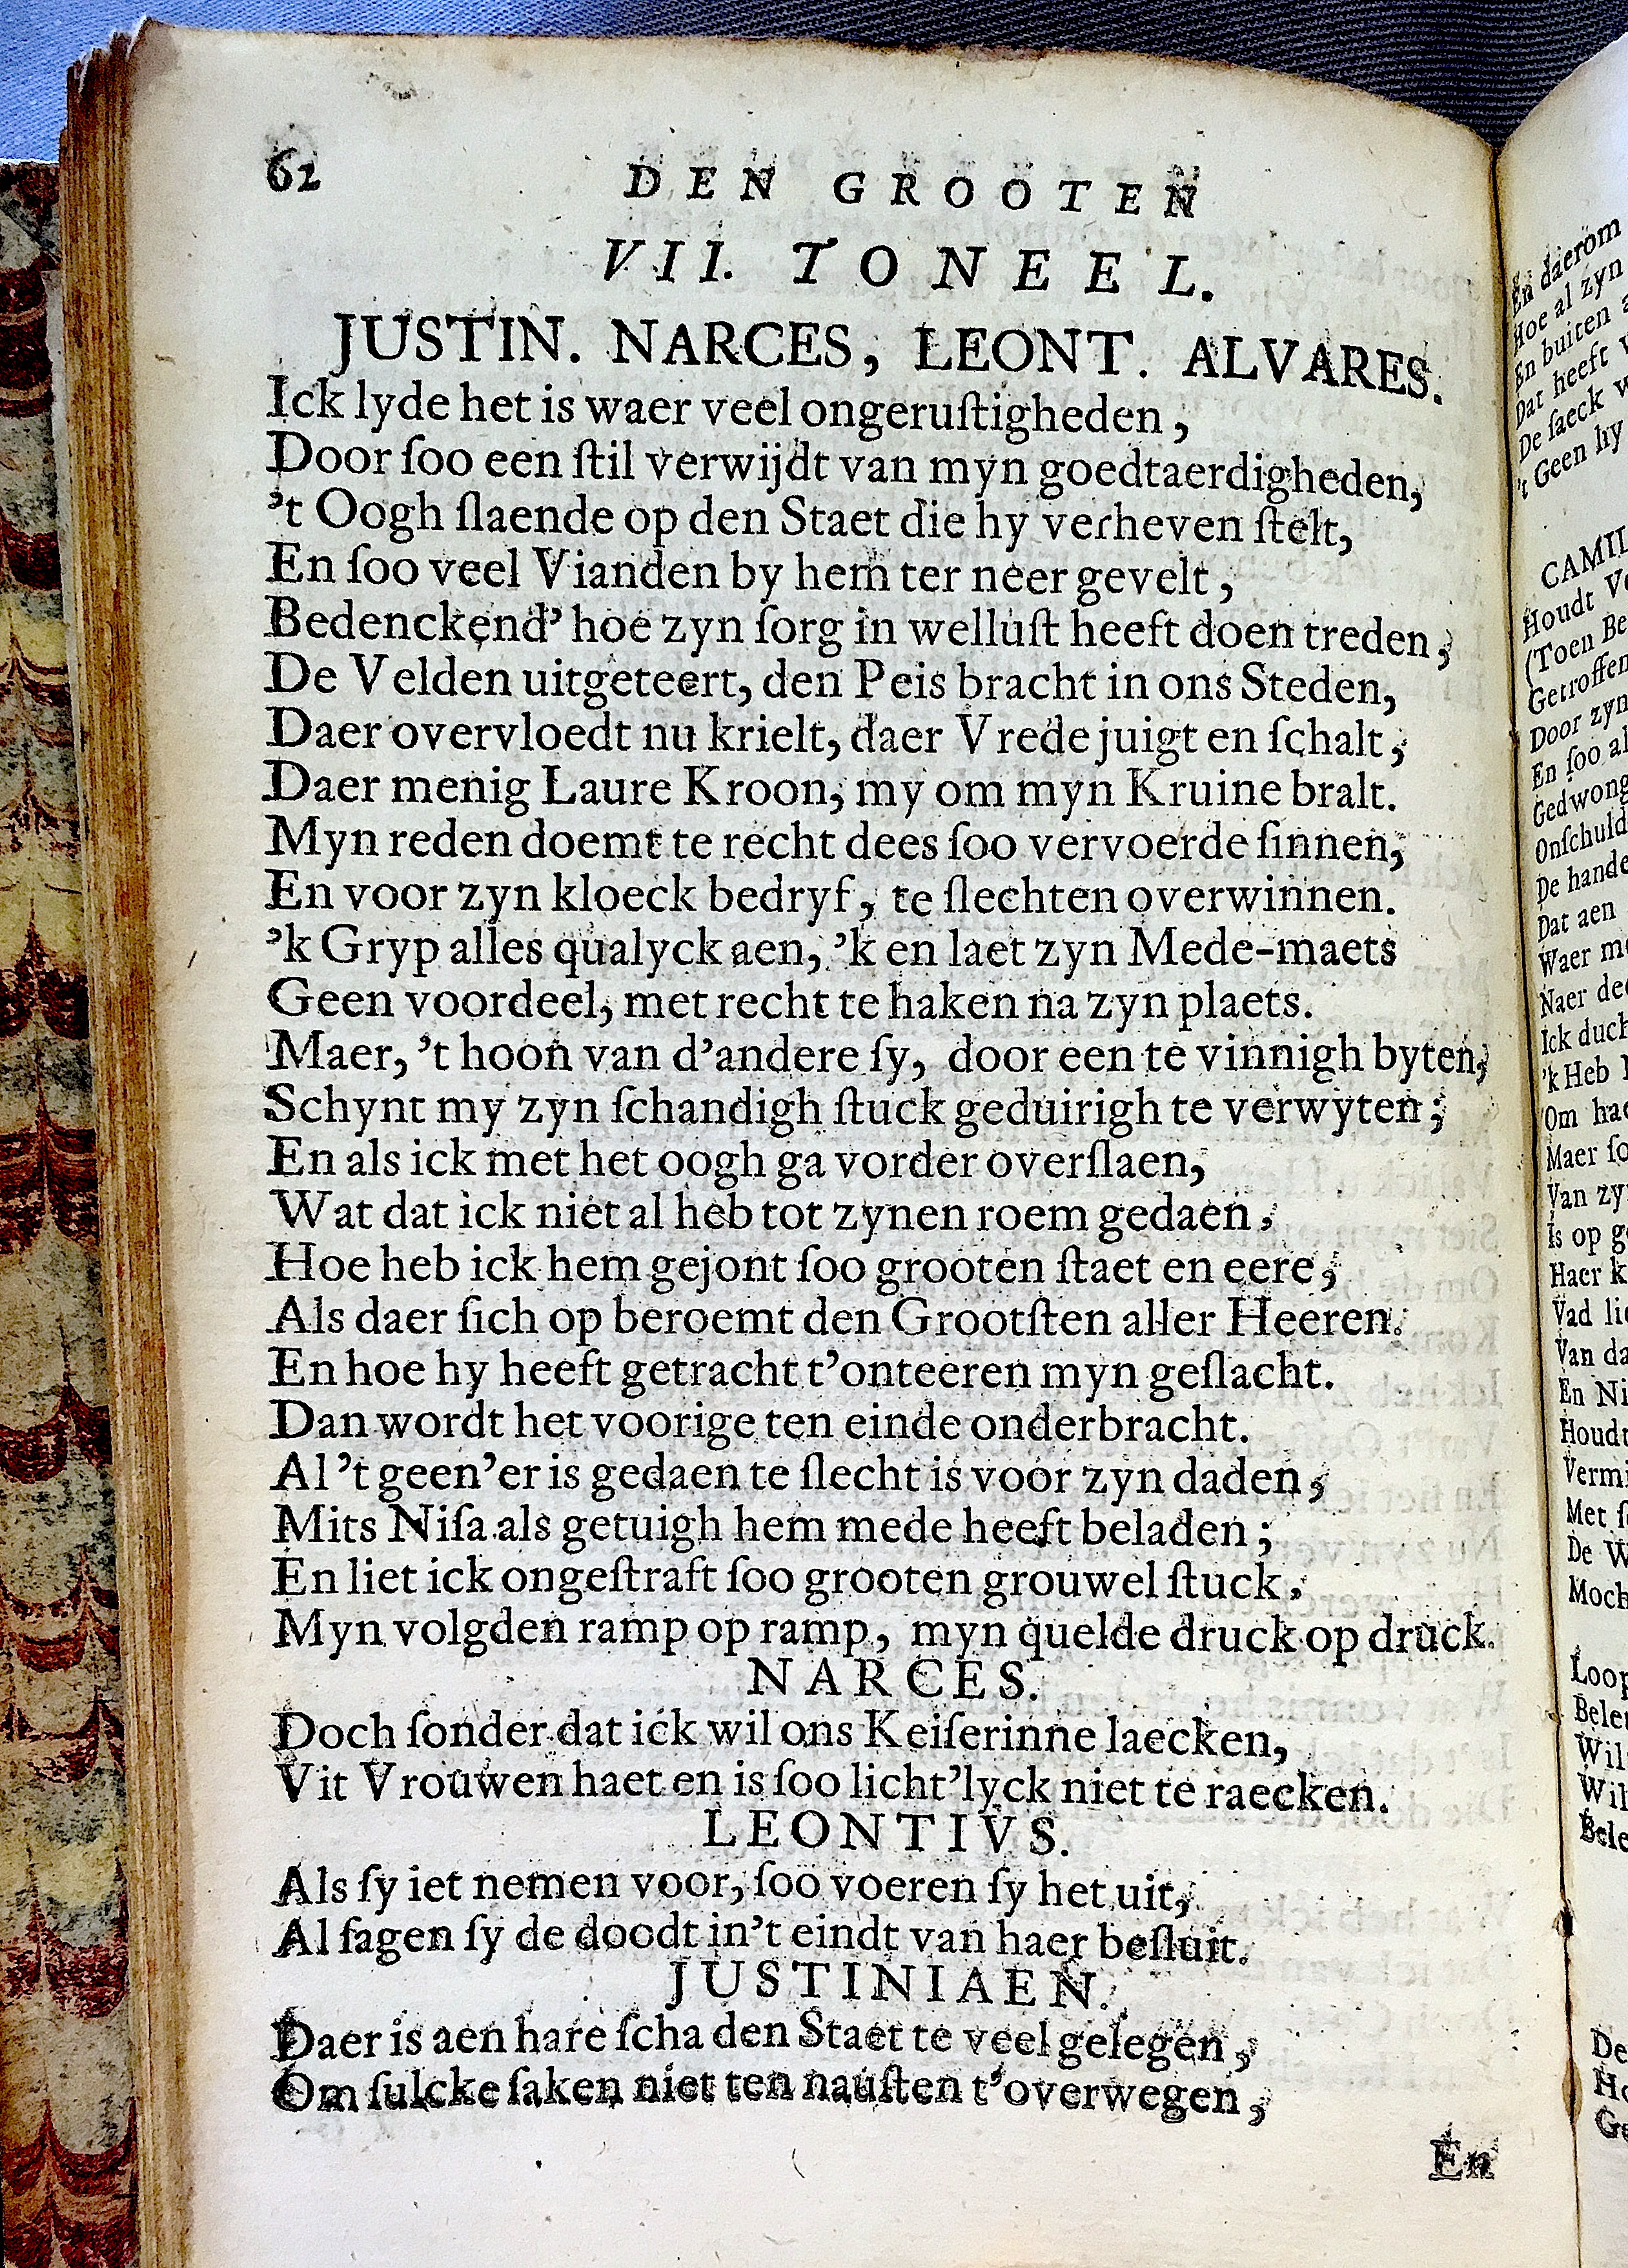 62
DEN GROOTEN
VII. TONEEL.
JUSTIN. NARCES, LEONT. ALVARES.
Ick lyde het is waer veel ongeruſtigheden,
Door ſoo een ſtil verwijdt van myn goedtaerdigheden,
’t Oogh ſlaende op den Staet die hy verheven ſtelt,
En ſoo veel Vianden by hem ter neer gevelt,
Bedenckend’ hoe zyn ſorg in welluſt heeft doen treden,
De Velden uitgeteert, den Peis bracht in ons Steden,
Daer overvloedt nu krielt, daer Vrede juigt en ſchalt,
Daer menig Laure Kroon, my om myn Kruine bralt.
Myn reden doemt te recht dees ſoo vervoerde ſinnen,
En voor zyn kloeck bedryf, te ſlechten overwinnen.
’k Gryp alles qualyck aen, ’k en laet zyn Mede-maets
Geen voordeel, met recht te haken na zyn plaets.
Maer, ’t hoon van d’andere ſy, door een te vinnigh byten,
Schynt my zyn ſchandigh ſtuck geduirigh te verwyten;
En als ick met het oogh ga vorder overſlaen,
Wat dat ick niet al heb tot zynen roem gedaen,
Hoe heb ick hem gejont ſoo grooten ſtaet en eere,
Als daer ſich op beroemt den Grootſten aller Heeren.
En hoe hy heeft getracht t’onteeren myn geſlacht.
Dan wordt het voorige ten einde onderbracht.
Al ’t geen’er is gedaen te ſlecht is voor zyn daden,
Mits Niſa als getuigh hem mede heeft beladen;
En liet ick ongeſtraft ſoo grooten grouwel ſtuck,
Myn volgden ramp op ramp, myn quelde druck op druck.
NARCES.
Doch ſonder dat ick wil ons Keiſerinne laecken,
Vit Vrouwen haet en is ſoo licht’lyck niet te raecken.
LEONTIVS.
Als ſy iet nemen voor, ſoo voeren ſy het uit,
Al ſagen ſy de doodt in’t eindt van haer beſluit.
JUSTINIAEN.
Daer is aen hare ſcha den Staet te veel gelegen,
Om ſulcke ſaken niet ten nauſten t’overwegen,
En
En daerom
Hoe al zyn
En buiten
Dat heeft
De ſaeck
’t Geen hy
Houdt
(Toen
Getroffen
Door zyn
En ſoo
Onſchuld
Dat aen
Waer
Naer
Ick
’k Heb
Om
Maer
Van
Is op
Haer
Van
En
Met
De